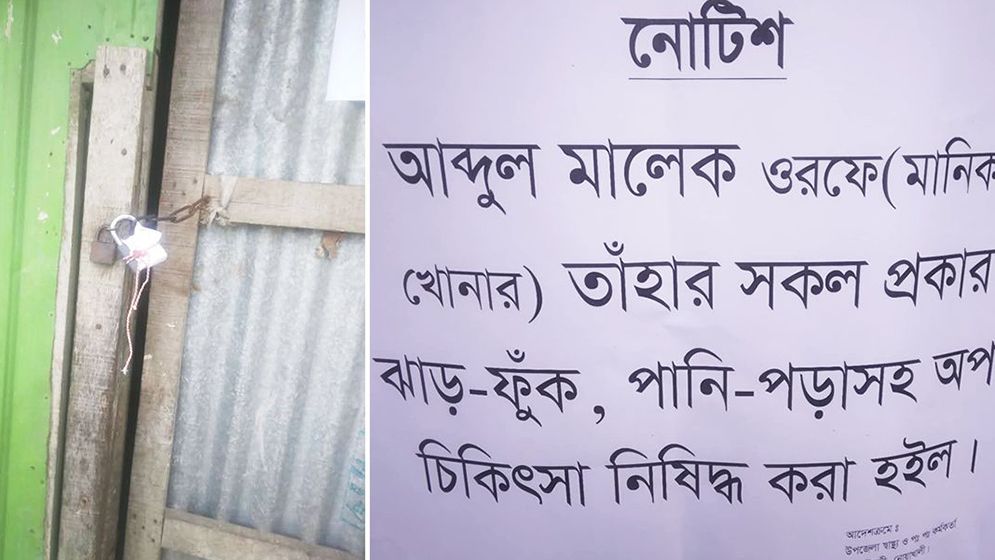 নোটিশ
আব্দুল মালেক ওরফে (মানিক
খোনার) তাঁহার সকল প্রকার
ঝাড়-ফুঁক, পানি-পড়াসহ অপ
চিকিৎসা নিষিদ্ধ করা হইল।
আদেশক্রমে ঃ
উপজেলা স্বাস্থ্য ও পঃ পঃ কর্মকর্তা
নোয়াখালী।